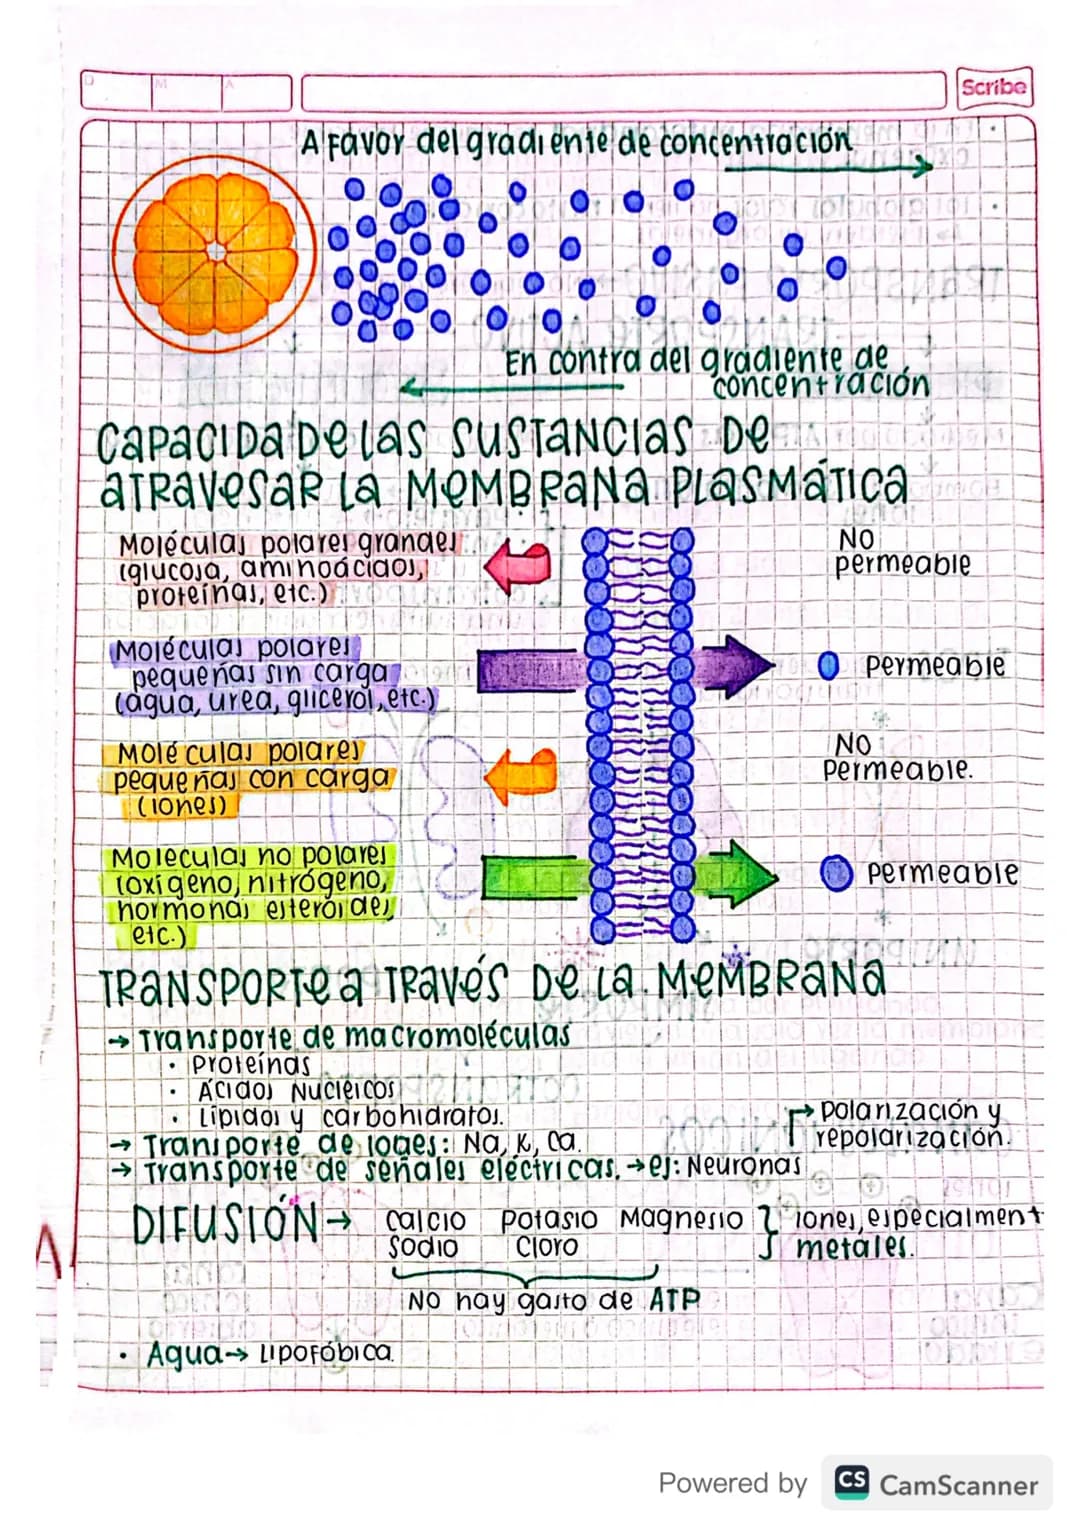 D
M
A
Scribe
A favor del gradiente de concentración
En contra del gradiente de
concentración
CAPACIDAD DE LAS SUSTANCIAS DE
ATRAVESAR LA MEMBRANA PLASMÁTICA
Moléculas polares grandes
(glucosa, aminoácidos,
proteínas, etc.)
NO
permeable
Moléculas polares
pequeñas sin carga
(agua, urea, glicerol, etc.)
Permeable
Moléculas polares
pequeñas con carga
(iones)
NO
Permeable.
Moleculas no polares
(oxígeno, nitrógeno,
hormonas esteroides,
etc.)
Permeable
TRANSPORTE A TRAVÉS DE LA MEMBRANA
→ Transporte de macromoléculas
• Proteínas
• Ácidos Nucleicos
• Lípidos y carbohidratos.
→ Transporte de iones: Na, K, Ca.
Polarización y
repolarización.
→ Transporte de señales eléctricas. → ej: Neuronas
DIFUSIÓN → Calcio Potasio Magnesio } iones, especialment
Sodio Cloro metales.
No hay gasto de ATP
• Agua → Lipofóbica.
Powered by CS CamScanner